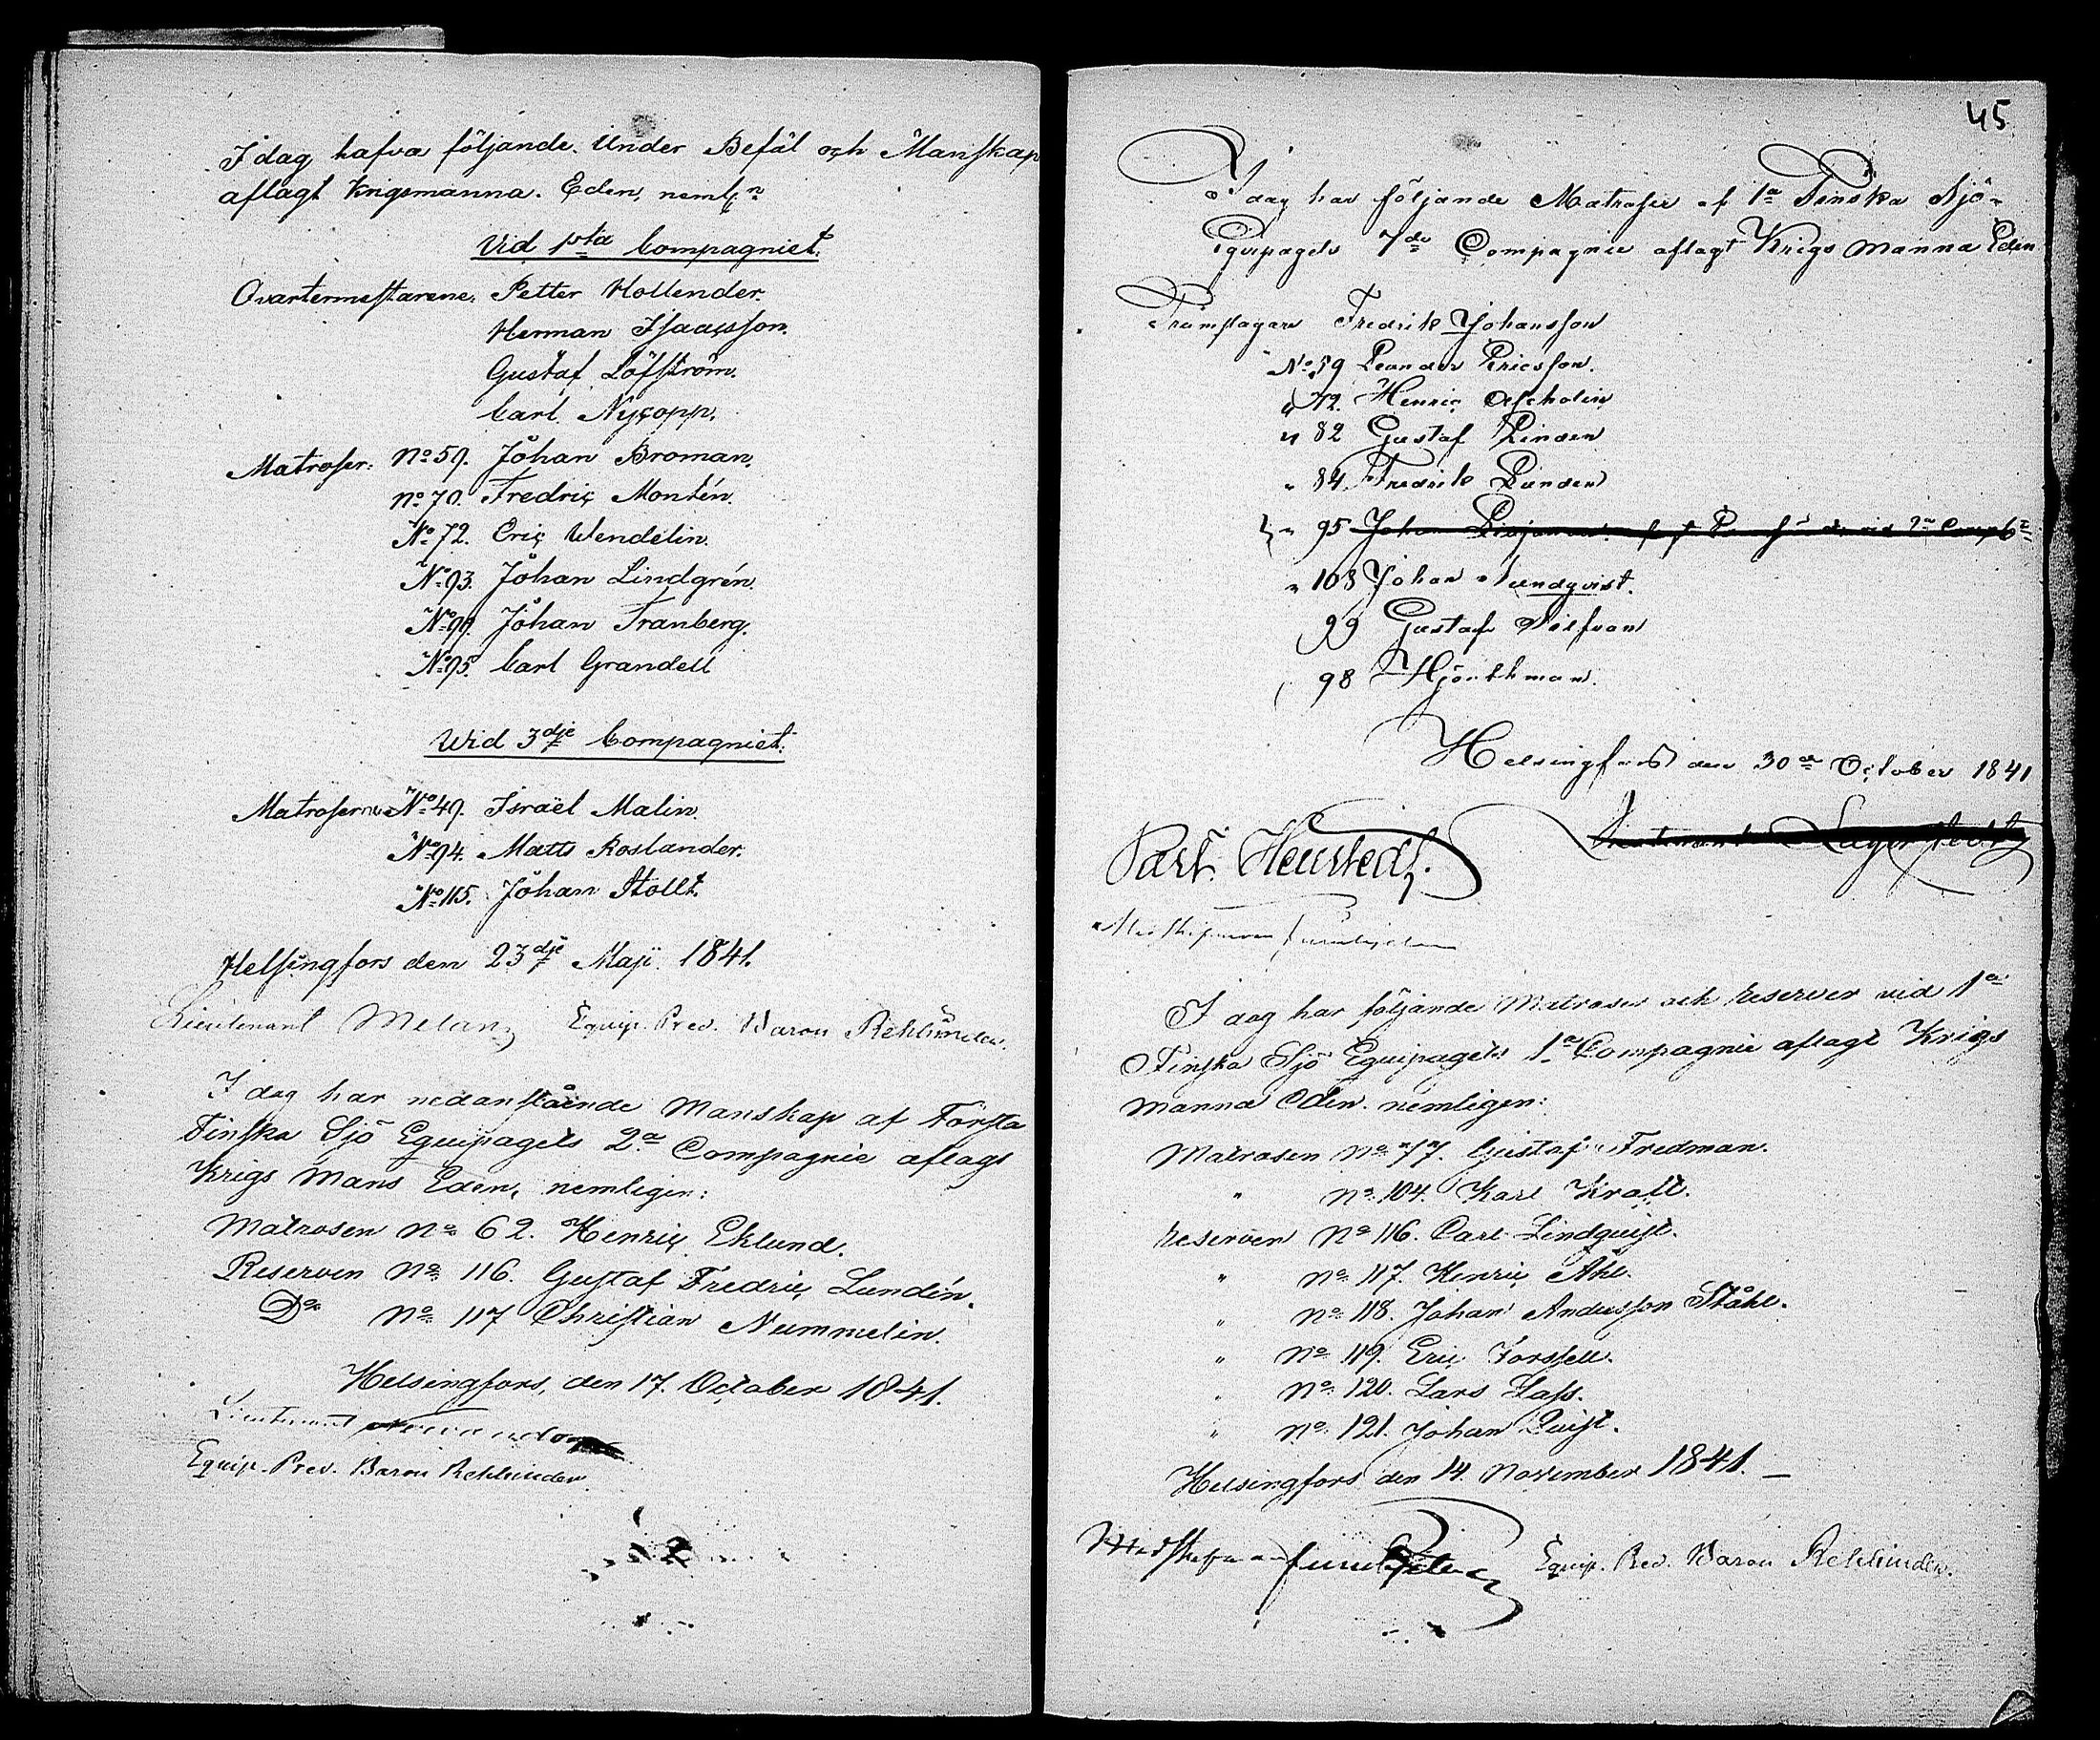 I dag hafva följande Under Befäl och Manskap
aflagt Krigsmanna Eden, neml:n
Vid 1sta Compagniet.
Qvartermästarene: Petter Hollender.
Herman Isaacsson.
Gustaf Löfström.
Carl Nycopp.
Matroser: No 59. Johan Broman.
No 70. Fredric Montén.
No 72. Eric Wendelin.
No 93. Johan Lindgrén.
No 94. Johan Tranberg.
No 95. Carl Grandell
Wid 3dje Compagniet.
Matroserne No 49. Israël Malin.
No 94. Matts Roslander.
No 115. Johan Stollt.
Helsingfors den 23dje Maji 1841.
Lieutenant Melan Equip. Pred. Baron Rehbinder.
I dag har nedanstående Manskap af Första
Finska Sjö Equipagets 2a Compagnie aflagt
Krigs Mans Eden, nemligen:
Matrosen No 62. Henric Eklund.
Reserven No 116. Gustaf Fredric Lundén.
Do No 117 Christian Nummelin.
Helsingfors, den 17. October 1841.
Lieutenant
Equip. Pred. Baron Rehbinder.
45
I dag har följande Matroser af 1a Finska Sjö-
Equipagets 7de Compagnie aflagt Krigs manna Eden
Trumslagare Fredrik Johansson
No 59 Leander Ericsson.
" 72. Henric
" 82 Gustaf Linden
" 84. Fredrik Lunden
" 95 Johan
" 108 Johan Sundqvist.
99 Gustaf
98 Hjorthman.
Helsingfors den 30de October 1841
Lieutenant Lagerstedt
Carl
I dag har följande Matroser och Reserver vid 1a
Finska Sjö Equipagets 1a Compagnie aflagt Krigs
manna Eden nemligen:
Matrosen No 77. Gustaf Fredman.
" No 104. Karl Kraft.
Reserven No 116. Carl Lindquist.
" No 117. Henric Åhl.
" No 118. Johan Andersson Ståhl.
" No 119. Eric Forssell.
" No 120. Lars Lass.
" No 121. Johan Quist.
Helsingfors den 14 November 1841. —
Equip. Pred. Baron Rehbinder.